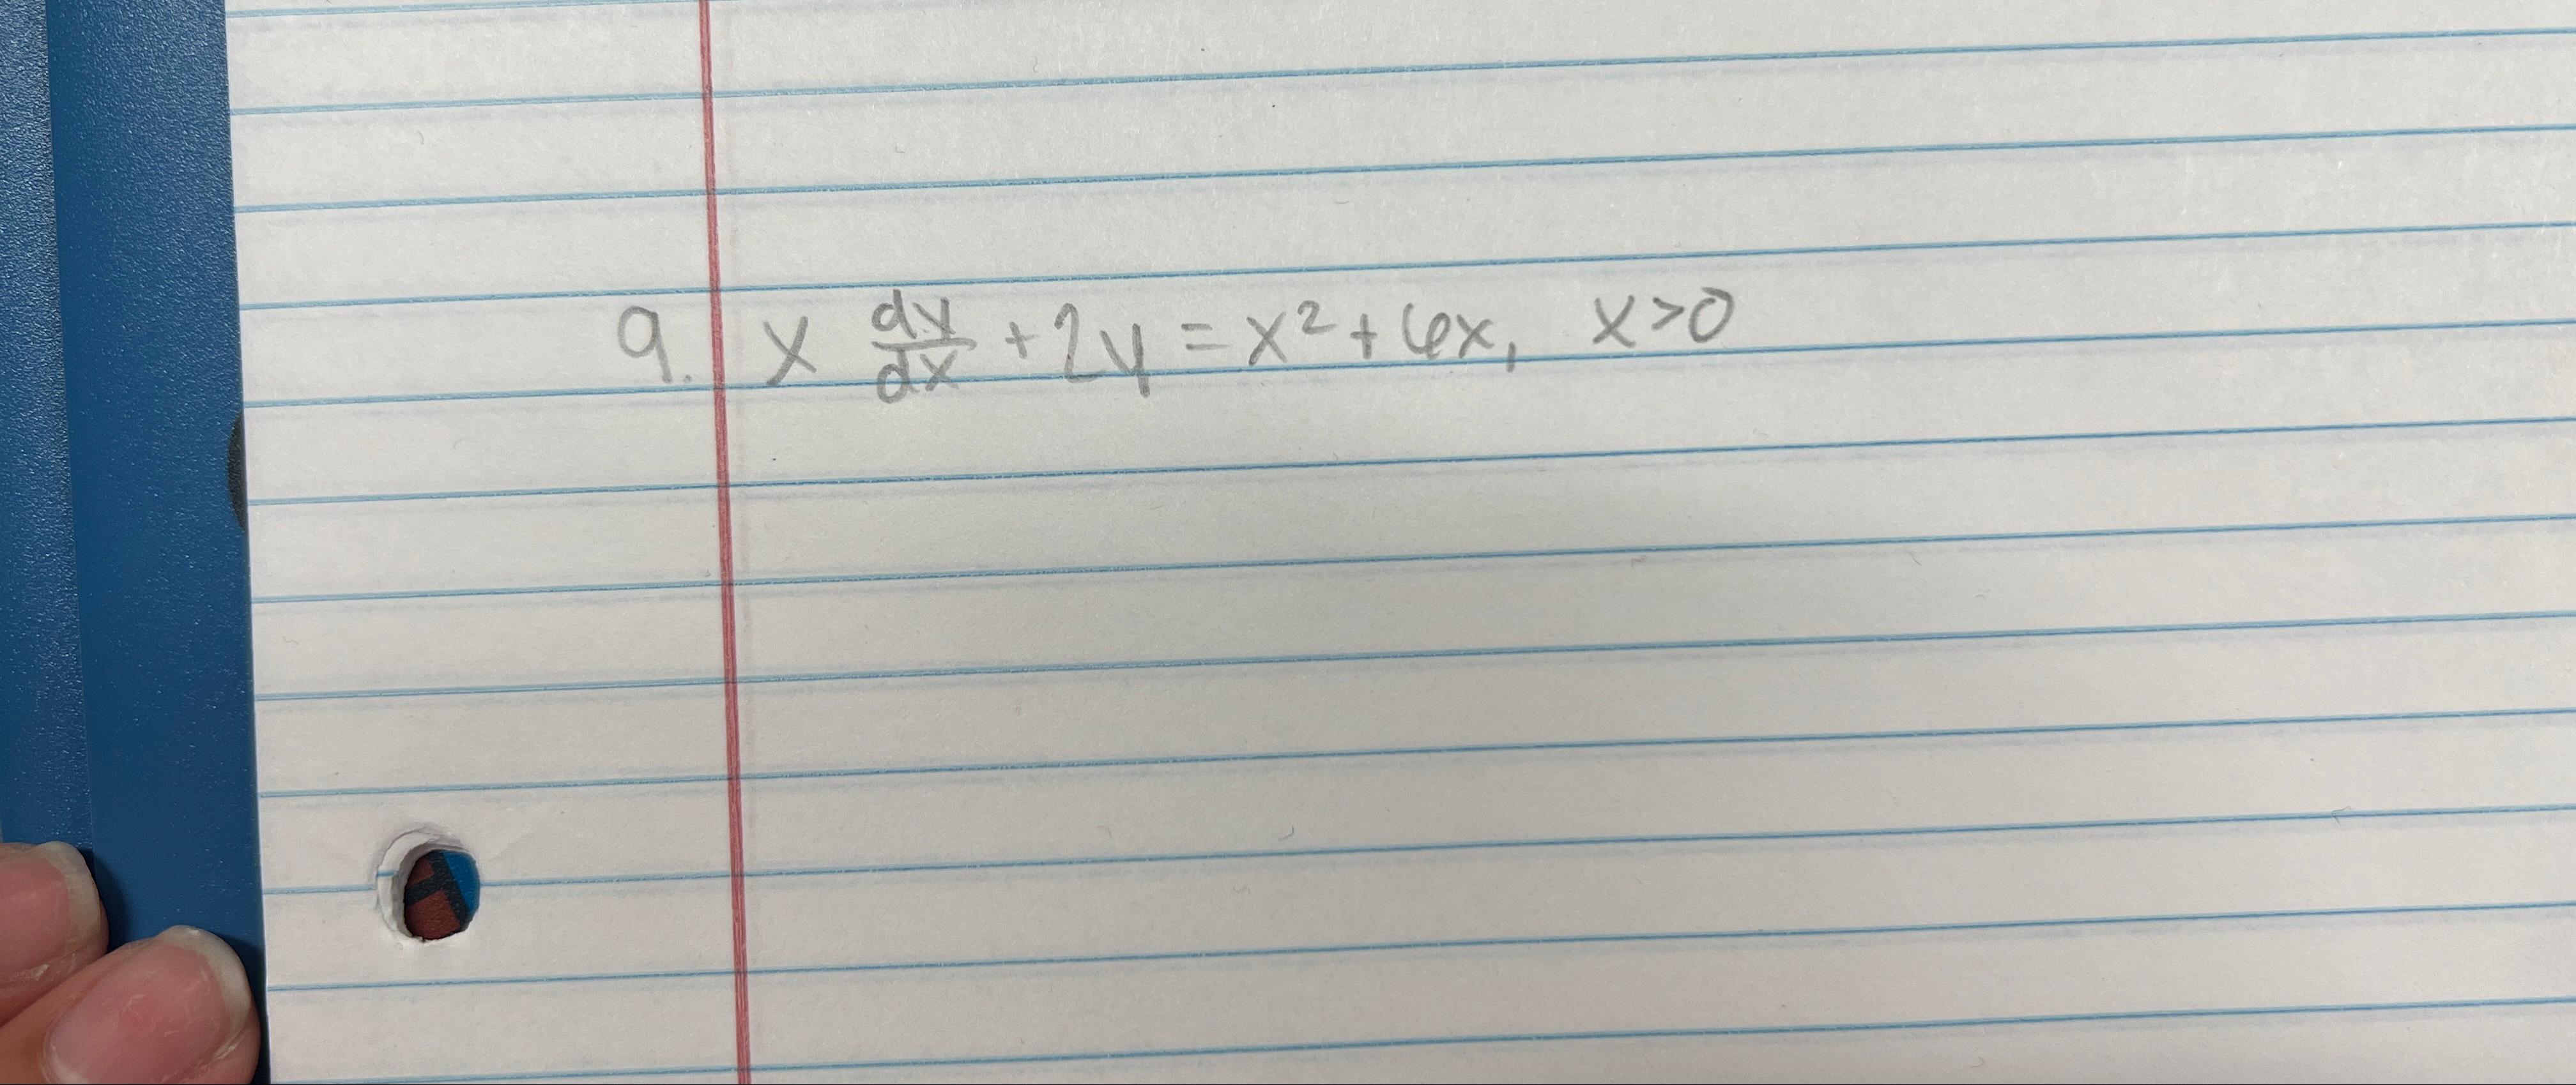 9. x dy/dx + 2y = x² + 6x, x > 0